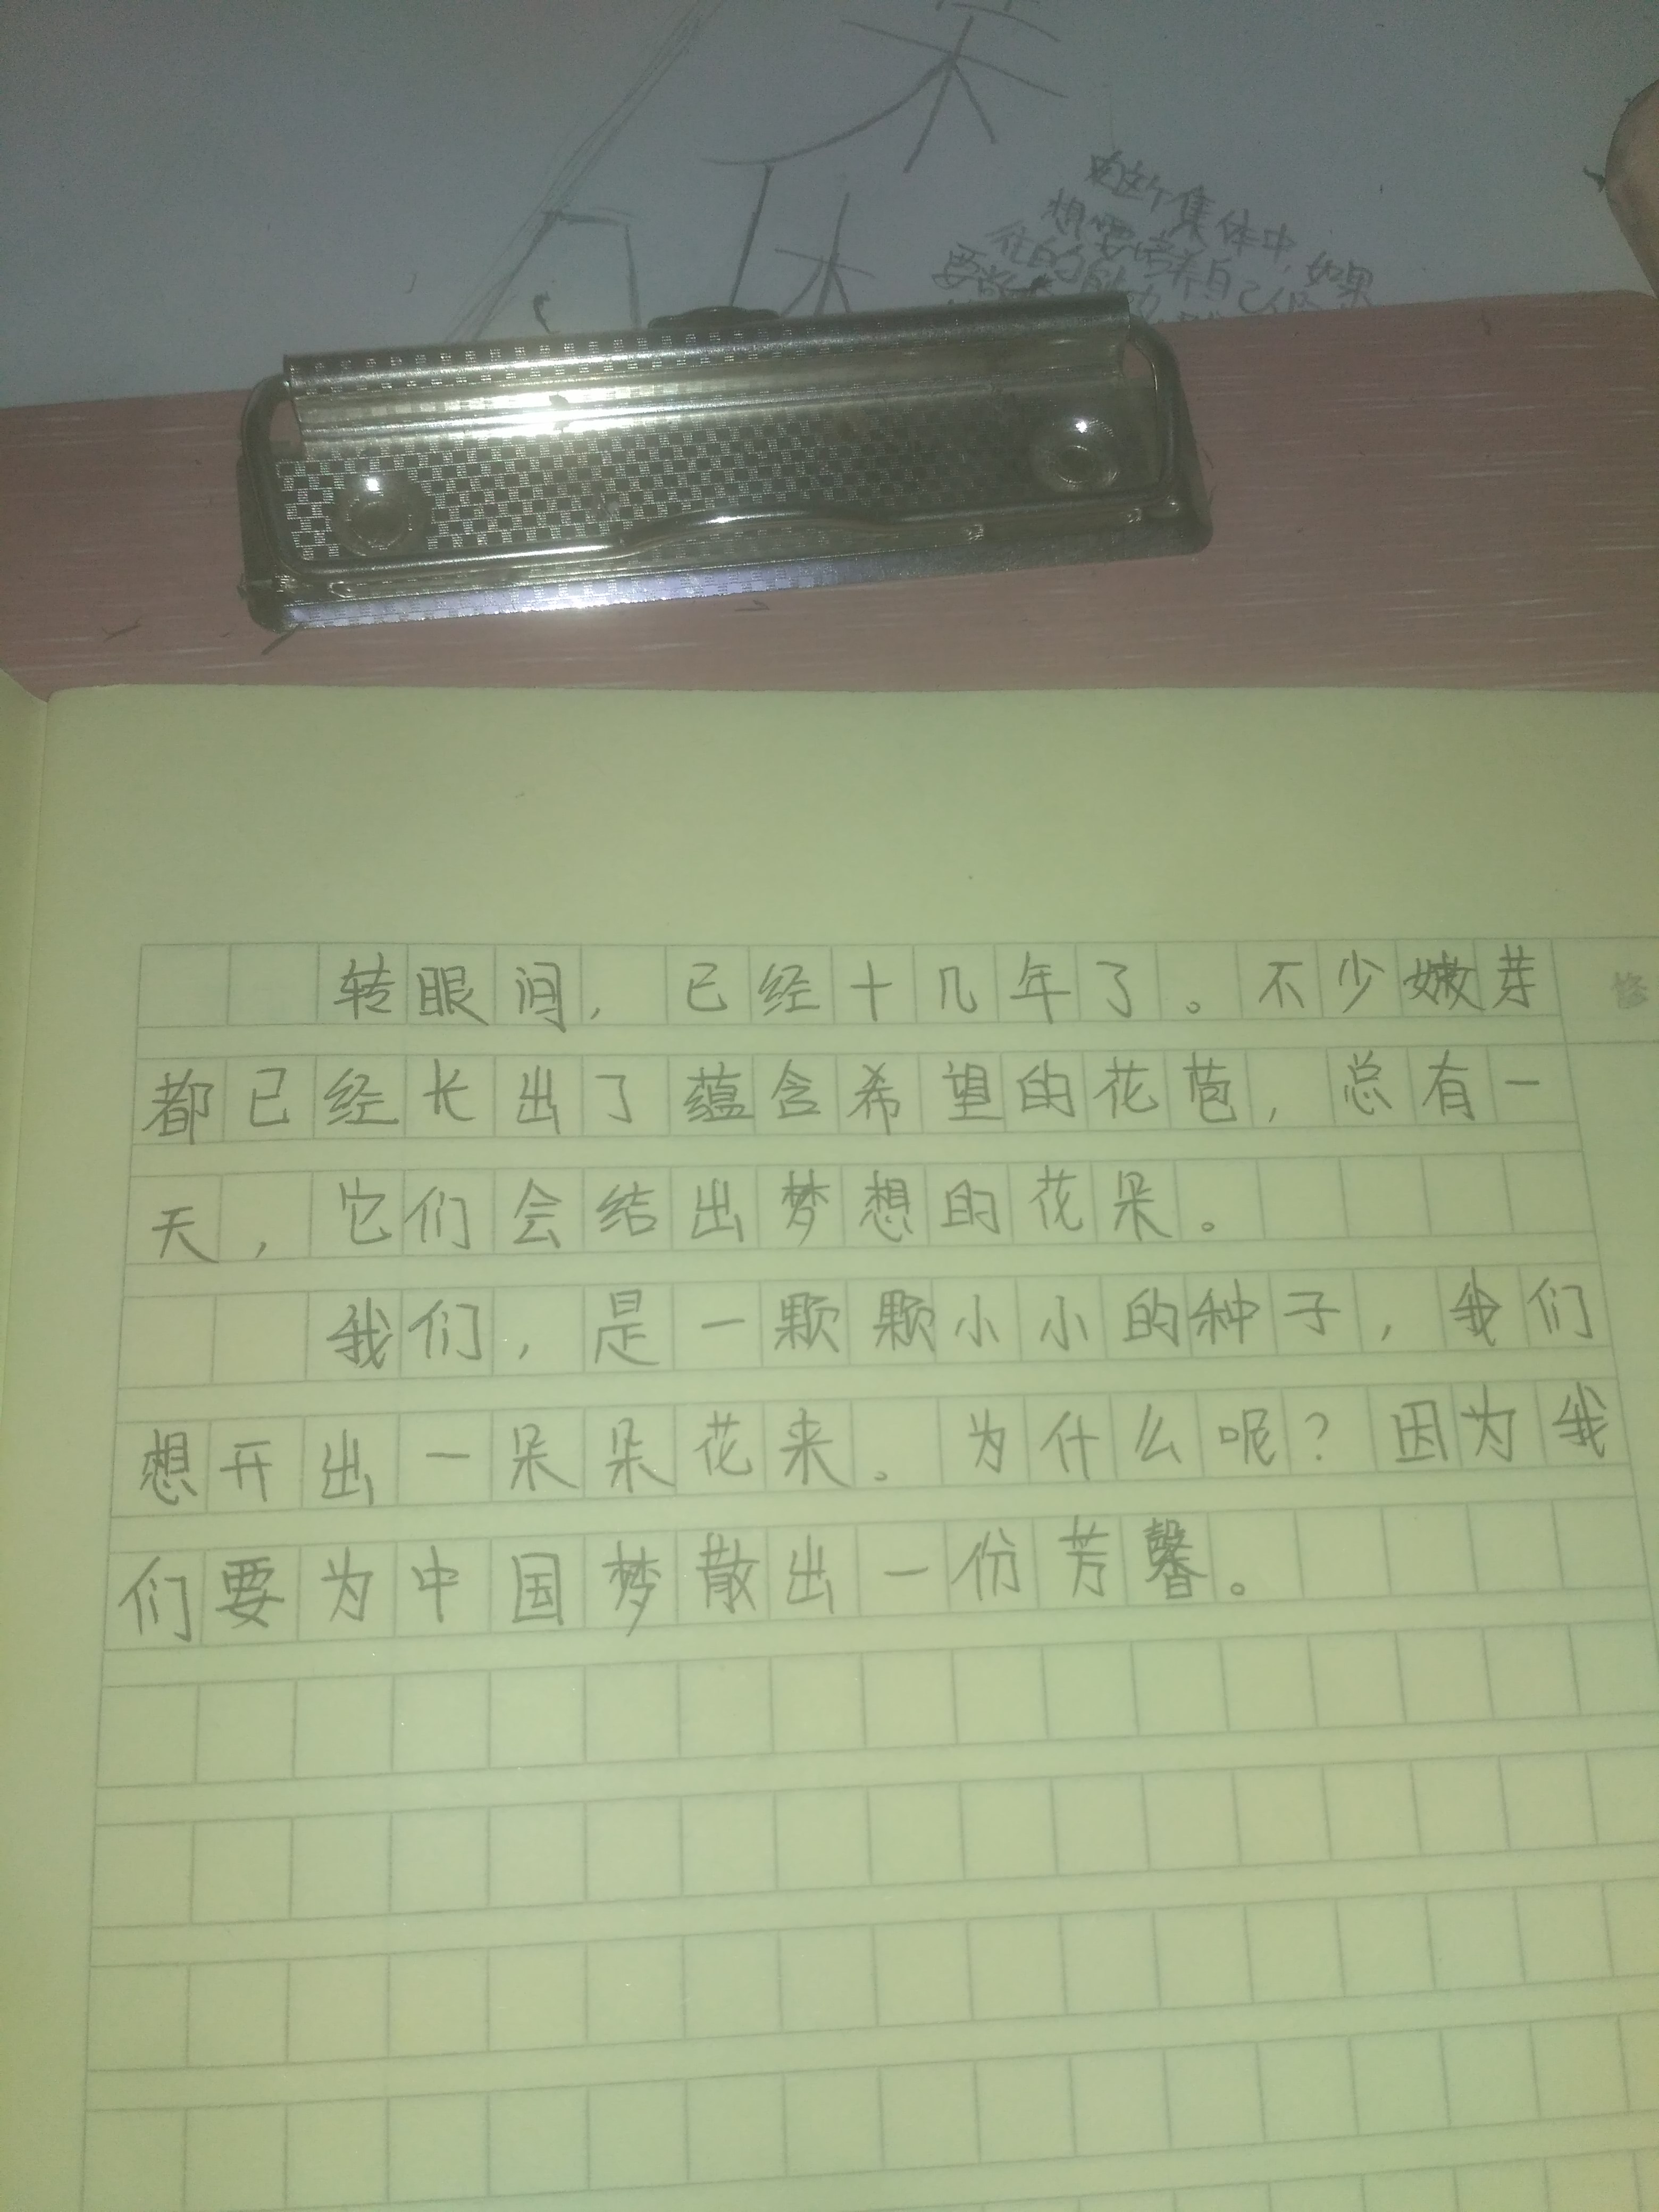 集体中,如果
想要培养自己
转眼间,已经十几年了。不少嫩芽
都已经长出了蕴含希望的花苞,总有一
天,它们会结出梦想的花朵。
我们,是一颗颗小小的种子,我们
想开出一朵朵花来。为什么呢?因为我
们要为中国梦散出一份芳馨。